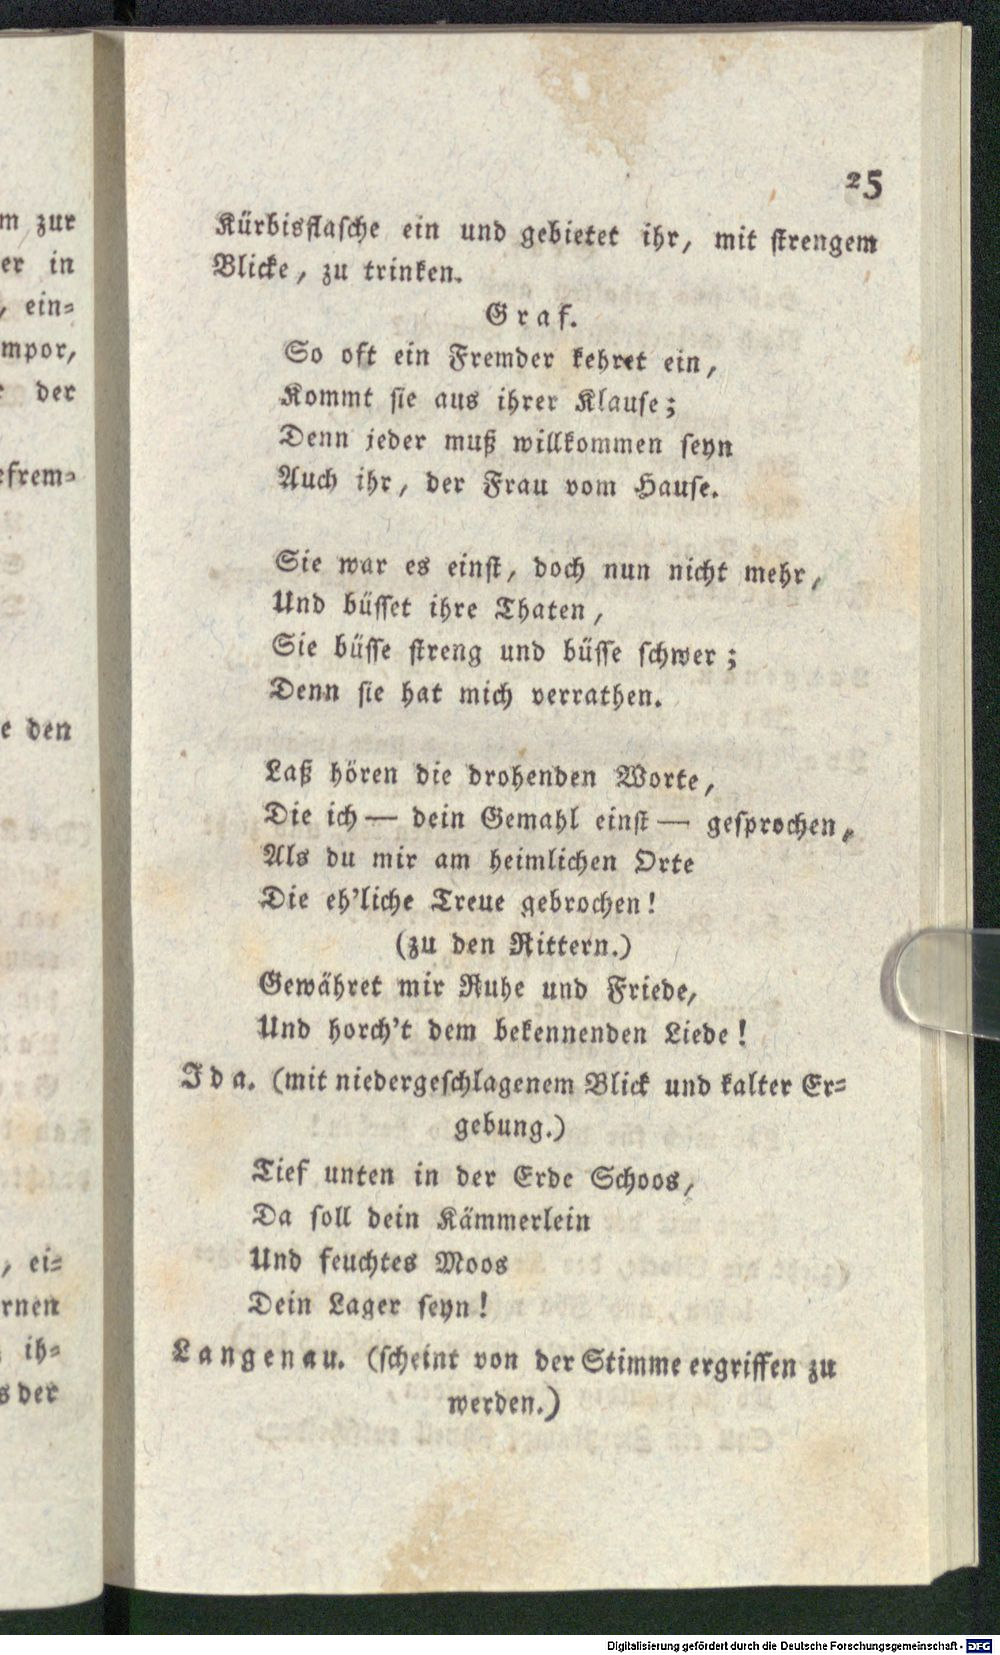 m zur
er in
, ein=
mpor,
der
efrem=
e den
, ei=
rnen
ih=
s der
25
Kürbisflasche ein und gebietet ihr, mit strengem
Blicke, zu trinken.
Graf.
So oft ein Fremder kehret ein,
Kommt sie aus ihrer Klause;
Denn jeder muß willkommen seyn
Auch ihr, der Frau vom Hause.
Sie war es einst, doch nun nicht mehr,
Und büsset ihre Thaten,
Sie büsse streng und büsse schwer;
Denn sie hat mich verrathen.
Laß hören die drohenden Worte,
Die ich — dein Gemahl einst — gesprochen,
Als du mir am heimlichen Orte
Die eh'liche Treue gebrochen!
(zu den Rittern.)
Gewähret mir Ruhe und Friede,
Und horch't dem bekennenden Liede!
Ida. (mit niedergeschlagenem Blick und kalter Er=
gebung.)
Tief unten in der Erde Schoos,
Da soll dein Kämmerlein
Und feuchtes Moos
Dein Lager seyn!
Langenau. (scheint von der Stimme ergriffen zu
werden.)
Digitalisierung gefördert durch die Deutsche Forschungsgemeinschaft - DFG